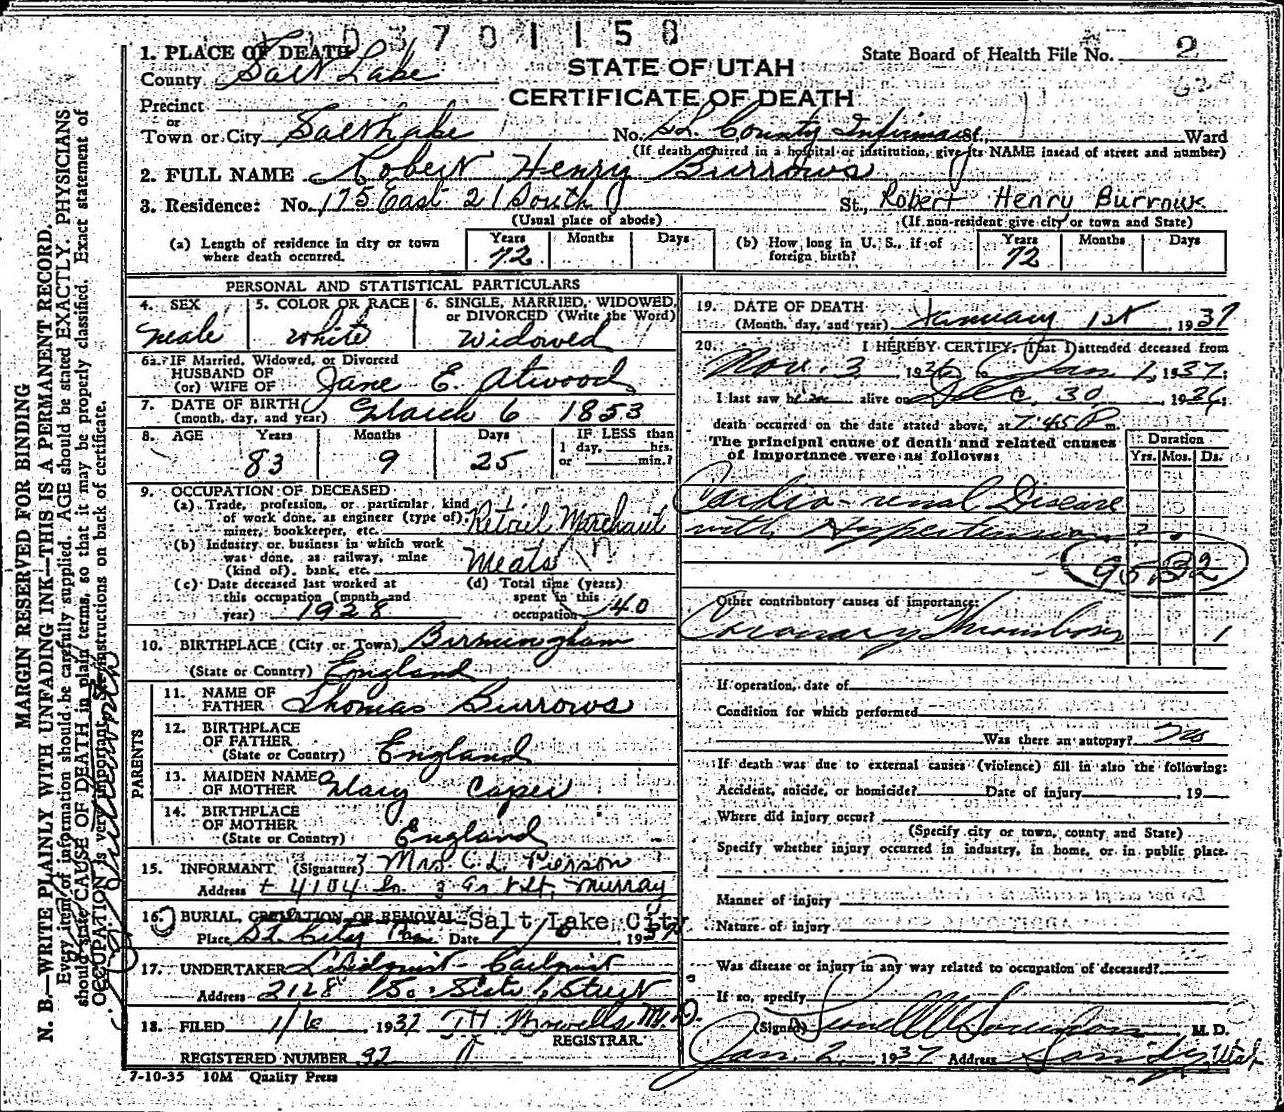 370 1158
1. PLACE OF DEATH
STATE OF UTAH
State Board of Health File No. 2
County Salt Lake
CERTIFICATE OF DEATH
Precinct
or
Town or City Salt Lake No. S.L. County Infirmary St., Ward
(If death occurred in a hospital or institution, give its NAME instead of street and number)
2. FULL NAME Robert Henry Burrows
3. Residence: No. 175 East 21 South St., Robert Henry Burrows
(Usual place of abode) (If non-resident give city or town and State)
(a) Length of residence in city or town where death occurred. Years 72 Months Days
(b) How long in U. S., if of foreign birth? Years 72 Months Days
PERSONAL AND STATISTICAL PARTICULARS
4. SEX male
5. COLOR OR RACE white
6. SINGLE, MARRIED, WIDOWED, or DIVORCED (Write the Word) Widowed
6a. IF Married, Widowed, or Divorced
HUSBAND OF
(or) WIFE OF Jane E. Atwood
7. DATE OF BIRTH
(month, day, and year) March 6 1853
8. AGE Years 83 Months 9 Days 25 IF LESS than 1 day, hrs. or min.?
9. OCCUPATION OF DECEASED
(a) Trade, profession, or particular kind of work done, as engineer (type of), miner, bookkeeper, etc. Retail Merchant
(b) Industry or business in which work was done, as railway, mine (kind of), bank, etc. Meats
(c) Date deceased last worked at this occupation (month and year) 1928
(d) Total time (years) spent in this occupation 40
10. BIRTHPLACE (City or Town) Birmingham
(State or Country) England
PARENTS
11. NAME OF FATHER Thomas Burrows
12. BIRTHPLACE OF FATHER
(State or Country) England
13. MAIDEN NAME OF MOTHER Mary
14. BIRTHPLACE OF MOTHER
(State or Country) England
15. INFORMANT (Signature) Mrs C. L. Pierson
Address 4104 So. Murray
16. BURIAL, CREMATION OR REMOVAL Salt Lake City
Place S.L. City Date 1/6, 1937
17. UNDERTAKER
Address 2128 So. State Street
18. FILED 1/6 1937 M.D.
REGISTRAR
REGISTERED NUMBER 92
7-10-35 10M Quality Press
19. DATE OF DEATH
(Month, day, and year) January 1st, 1937
20. I HEREBY CERTIFY, That I attended deceased from
Nov. 3, 1936 to Jan 1, 1937;
I last saw h alive on Dec. 30, 1936;
death occurred on the date stated above, at 7:45 P m.
The principal cause of death and related causes of importance were as follows:
Duration
Yrs. Mos. Ds.
Cardio-renal Disease
with Hypertension 2
Other contributory causes of importance:
Coronary Thrombosis 1
If operation, date of
Condition for which performed
Was there an autopsy? no
If death was due to external causes (violence) fill in also the following:
Accident, suicide, or homicide? Date of injury , 19
Where did injury occur?
(Specify city or town, county and State)
Specify whether injury occurred in industry, in home, or in public place.
Manner of injury
Nature of injury
Was disease or injury in any way related to occupation of deceased?
If so, specify
(Signed) M. D.
Jan. 2 1937 Address Sandy, Utah
MARGIN RESERVED FOR BINDING
N. B.—WRITE PLAINLY WITH UNFADING INK—THIS IS A PERMANENT RECORD.
Every item of information should be carefully supplied. AGE should be stated EXACTLY. PHYSICIANS
should state CAUSE OF DEATH in plain terms, so that it may be properly classified. Exact statement of
OCCUPATION is very important. See instructions on back of certificate.